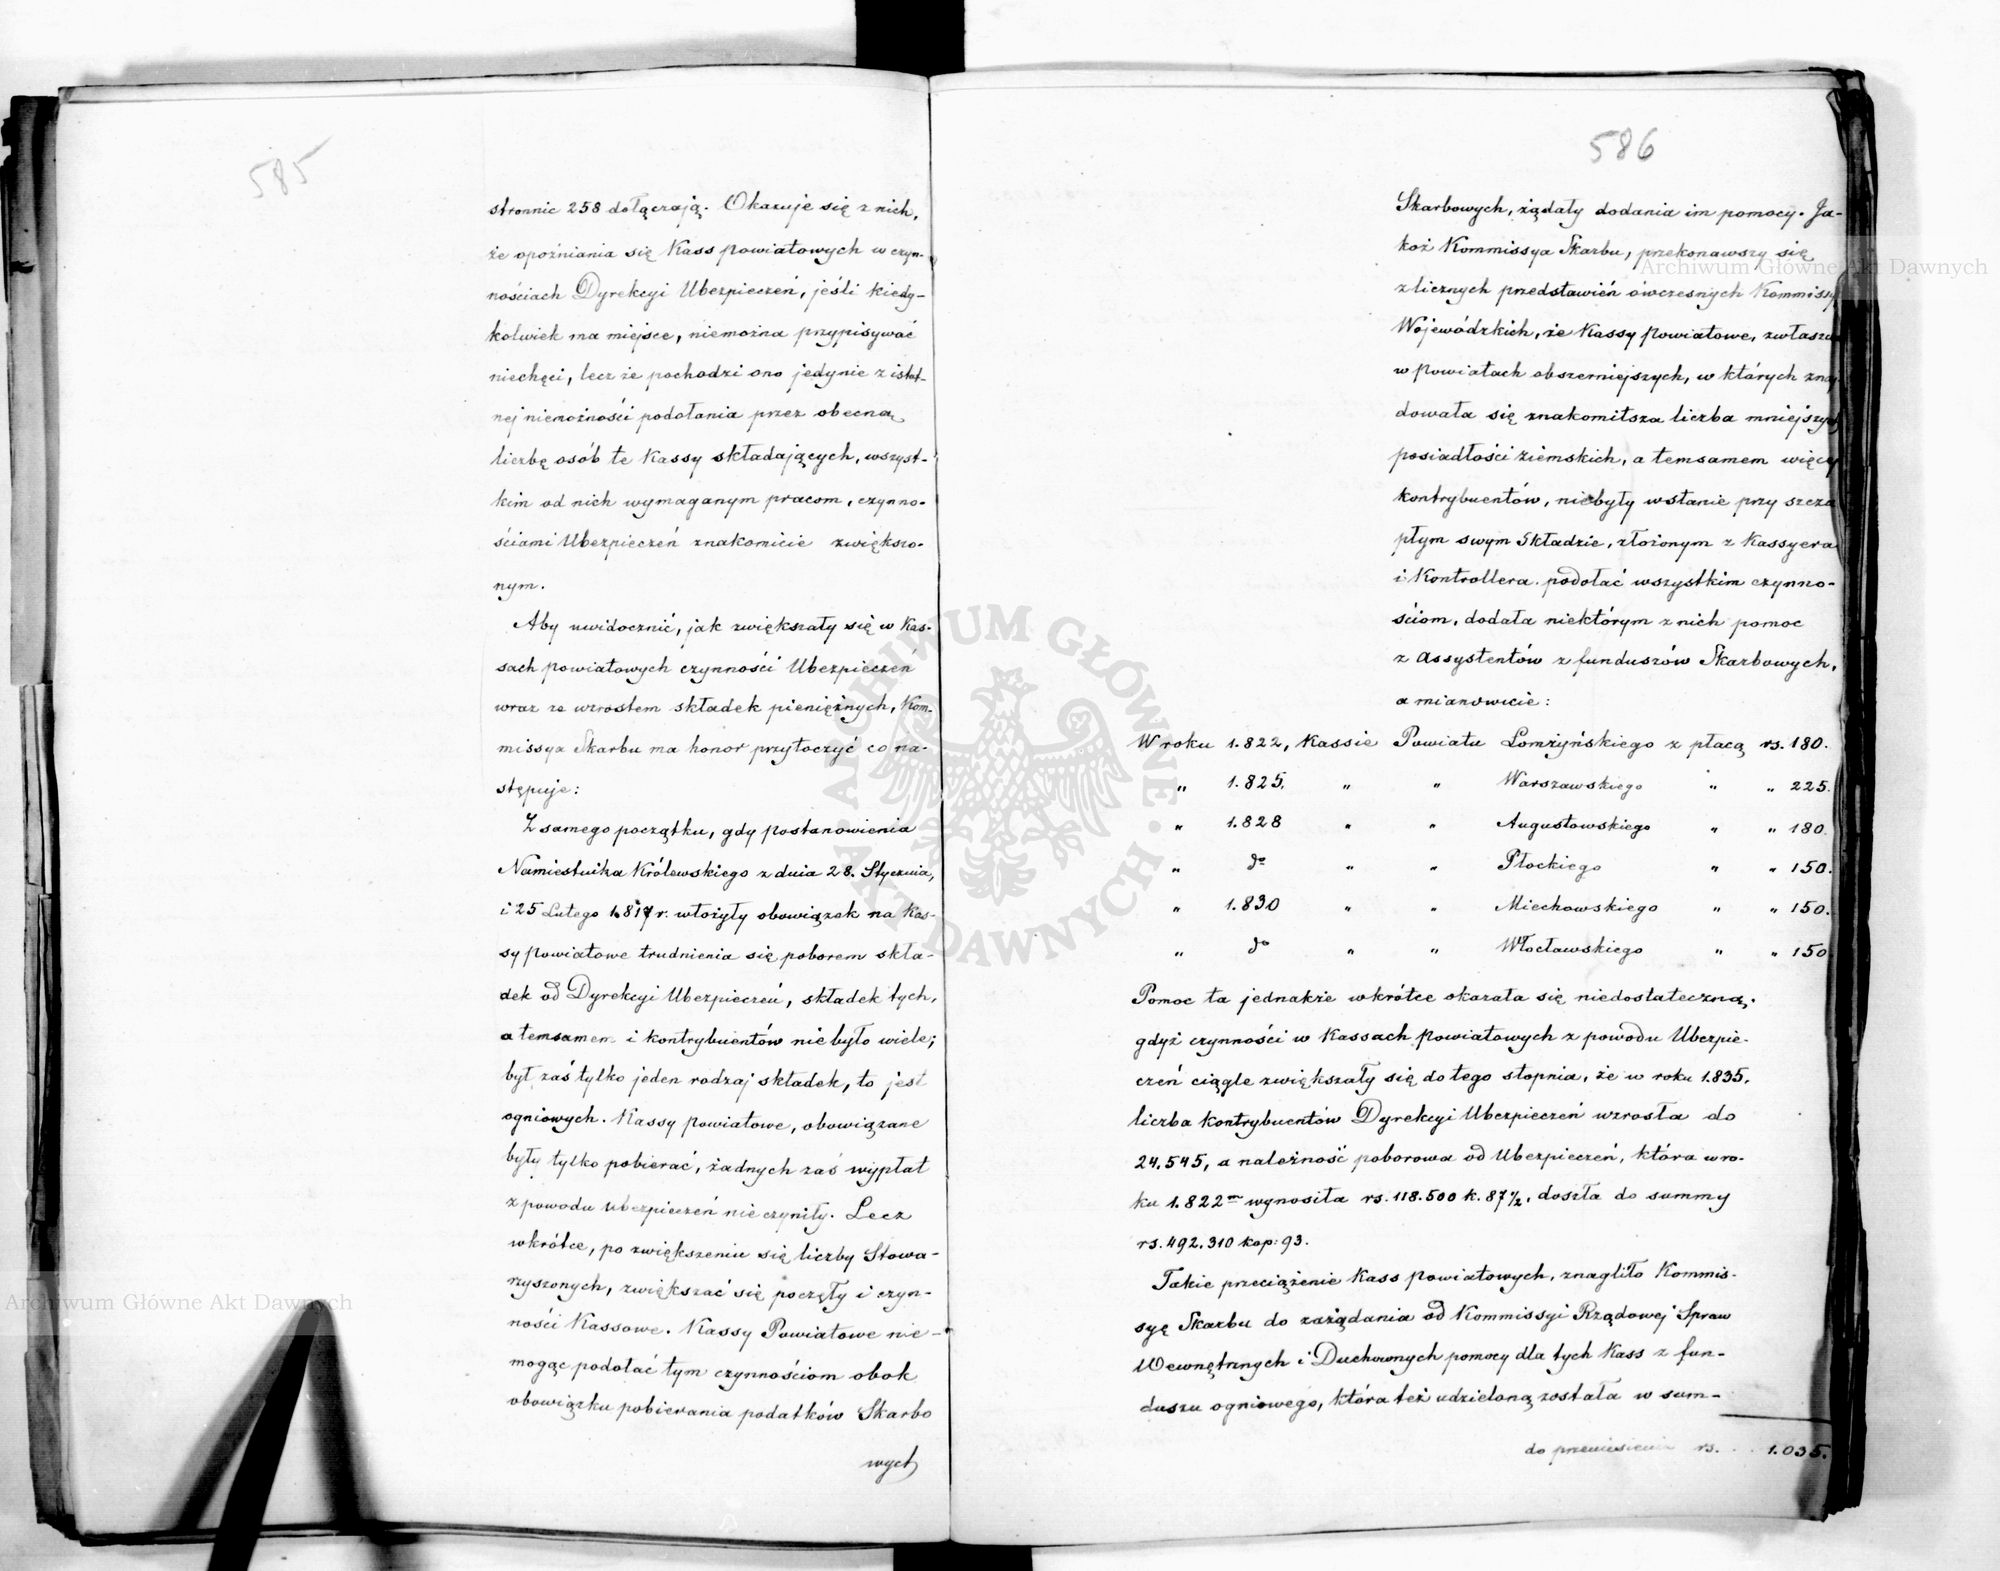 585
stronnic 258 dołączają. Okazuje się z nich,
że opoźniania się Kass Powiatowych w czyn-
nościach Dyrekcyi Ubezpieczeń, jeśli kiedy-
kolwiek ma miejsce, niemożna przypisywać
niechęci, lecz że pochodzi ono jedynie z istot-
nej niemożności podołania przez obecną
liczbę osób te Kassy składających, wszyst-
kim od nich wymaganym pracom, czynno-
ściami Ubezpieczeń znakomicie zwiększo-
nym.
Aby uwidocznić, jak zwiększały się w Kas-
sach Powiatowych czynności Ubezpieczeń
wraz ze wzrostem składek pieniężnych, Kom-
missya Skarbu ma honor przytoczyć co na-
stępuje:
Z samego początku, gdy postanowienia
Namiestnika Królewskiego z dnia 28. Stycznia,
i 25 Lutego 1.817 r. włożyły obowiązek na Kas-
sy Powiatowe trudnienia się poborem skła-
dek od Dyrekcyi Ubezpieczeń, składek tych,
a temsamem i kontrybuentów nie było wiele;
był zaś tylko jeden rodzaj składek, to jest
ogniowych. Kassy Powiatowe, obowiązane
były tylko pobierać, żadnych zaś wypłat
z powodu ubezpieczeń nie czyniły. Lecz
wkrótce, po zwiększeniu się liczby Stowa-
rzyszonych, zwiększać się poczęły i czyn-
ności Kassowe. Kassy Powiatowe nie-
mogąc podołać tym czynnościom obok
obowiązku pobierania podatków Skarbo
wych
586
Skarbowych, żądały dodania im pomocy. Ja-
koż Kommissya Skarbu, przekonawszy się
z licznych przedstawień ówczesnych Kommissy
Wojewódzkich, że Kassy Powiatowe, zwłaszcz
w Powiatach obszerniejszych, w których znaj
dowała się znakomitsza liczba mniejszych
posiadłości ziemskich, a temsamem więcej
kontrybuentów, niebyły wstanie przy szczu
płym swym Składzie, złożonym z Kassyera
i Kontrollera podołać wszystkim czynno-
ściom, dodała niektórym z nich pomoc
z Assystentów z funduszów Skarbowych,
a mianowicie:
W roku 1.822, Kassie Powiatu Łomżyńskiego z płacą rs. 180.
" 1.825. " " Warszawskiego " " 225.
" 1.828 " " Augustowskiego " " 180.
" do " " Płockiego " " 150.
" 1.830 " " Miechowskiego " " 150.
" do " " Włocławskiego " " 150
Pomoc ta jednakże wkrótce okazała się niedostateczną,
gdyż czynności w Kassach Powiatowych z powodu Ubezpie-
czeń ciągle zwiększały się do tego stopnia, że w roku 1.835.
liczba kontrybuentów Dyrekcyi Ubezpieczeń wzrosła do
24.545, a należność poborowa od Ubezpieczeń, która w ro-
ku 1.822 m wynosiła rs. 118.500 k. 87½, doszła do summy
rs. 492.310 kop: 93.
Takie przeciążenie Kass Powiatowych, znagliło Kommis-
syę Skarbu do zażądania od Kommissyi Rządowej Spraw
Wewnętrznych i Duchownych pomocy dla tych Kass z fun-
duszu ogniowego, która też udzieloną została w sum-
do przeniesienia rs. . . 1.035.
Archiwum Główne Akt Dawnych
Archiwum Główne Akt Dawnych
ARCHIWUM GŁÓWNE • AKT DAWNYCH •